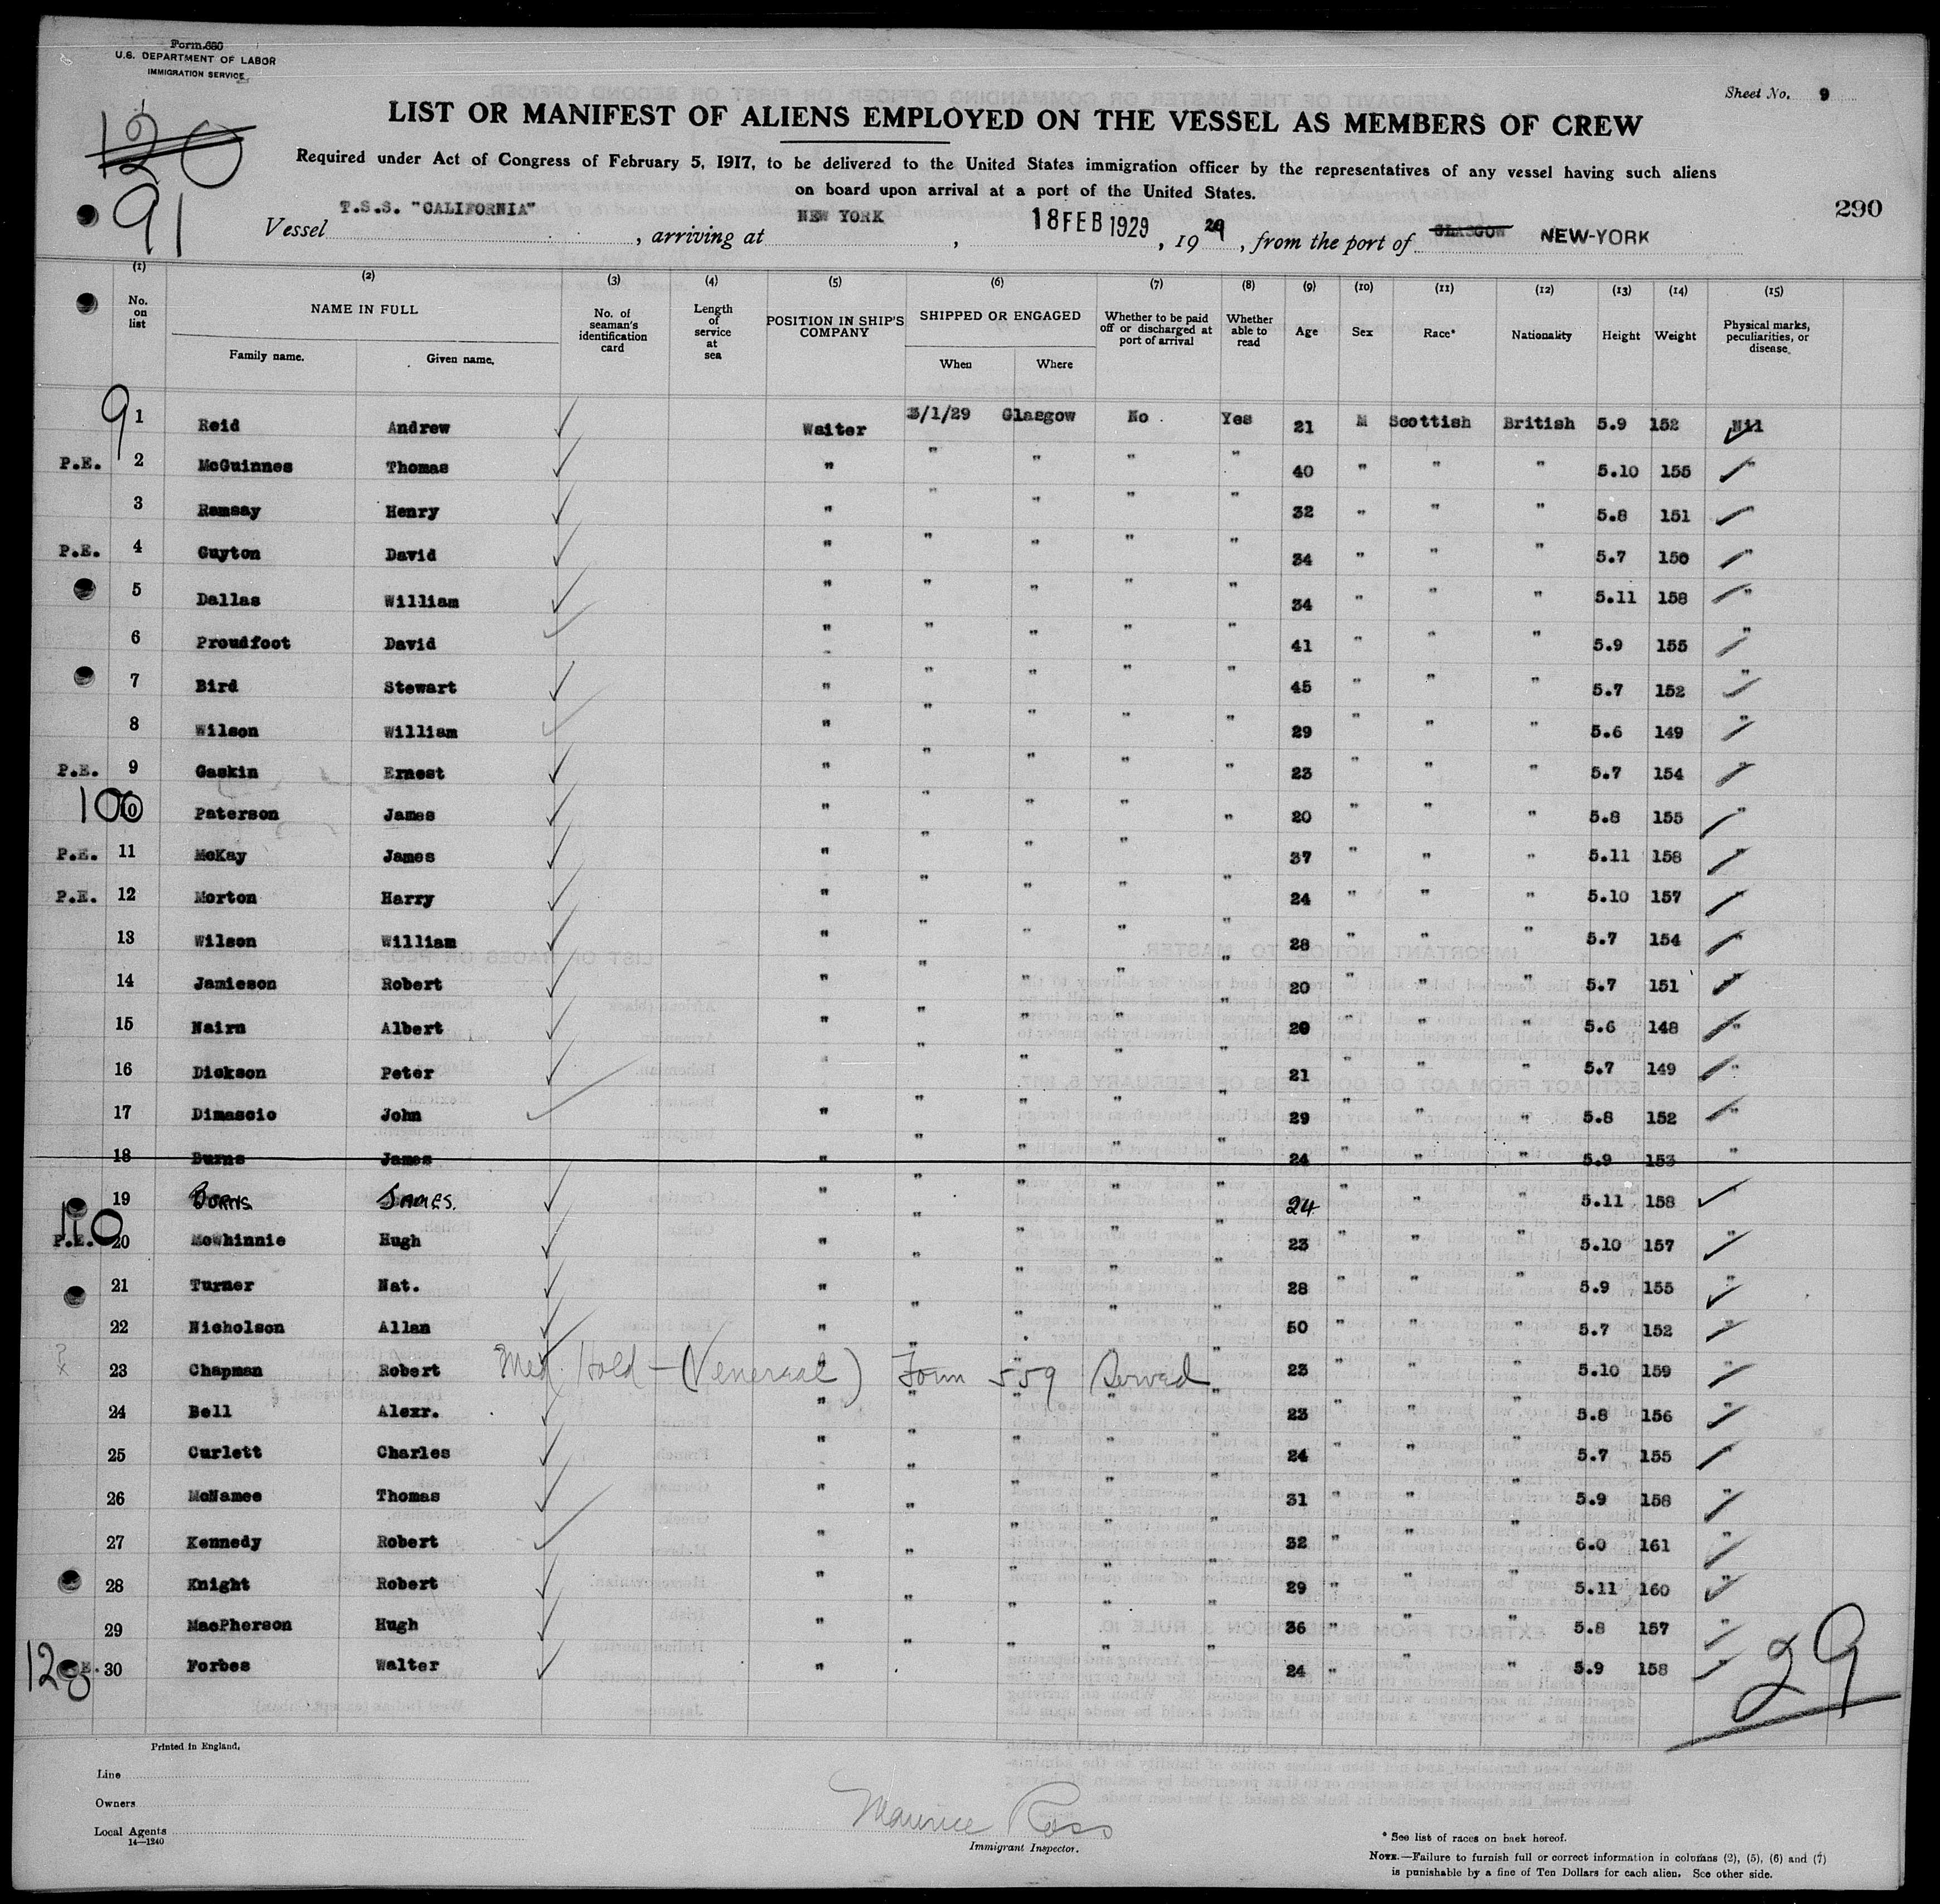 Form 680
U.S. DEPARTMENT OF LABOR
IMMIGRATION SERVICE
Sheet No. 9
LIST OR MANIFEST OF ALIENS EMPLOYED ON THE VESSEL AS MEMBERS OF CREW
120
Required under Act of Congress of February 5, 1917, to be delivered to the United States immigration officer by the representatives of any vessel having such aliens
on board upon arrival at a port of the United States.
91
290
Vessel T.S.S. "CALIFORNIA", arriving at NEW YORK, 18 FEB 1929, 1929, from the port of GLASGOW NEW-YORK
(1) (2) (3) (4) (5) (6) (7) (8) (9) (10) (11) (12) (13) (14) (15)
No. on list NAME IN FULL No. of seaman's identification card Length of service at sea POSITION IN SHIP'S COMPANY SHIPPED OR ENGAGED Whether to be paid off or discharged at port of arrival Whether able to read Age Sex Race* Nationality Height Weight Physical marks, peculiarities, or disease
Family name. Given name. When Where
9
1 Reid Andrew ✓ Waiter 3/1/29 Glasgow No. Yes 21 M Scottish British 5.9 152 Nil
P.E. 2 McGuinnes Thomas ✓ " " " " " 40 " " " 5.10 155 "
3 Ramsay Henry ✓ " " " " " 32 " " " 5.8 151 "
P.E. 4 Guyton David ✓ " " " " " 34 " " " 5.7 150 "
5 Dallas William ✓ " " " " " 34 " " " 5.11 158 "
6 Proudfoot David ✓ " " " " " 41 " " " 5.9 155 "
7 Bird Stewart ✓ " " " " " 45 " " " 5.7 152 "
8 Wilson William ✓ " " " " " 29 " " " 5.6 149 "
P.E. 9 Gaskin Ernest ✓ " " " " " 23 " " " 5.7 154 "
100 10 Paterson James ✓ " " " " " 20 " " " 5.8 155 "
P.E. 11 McKay James ✓ " " " " " 37 " " " 5.11 158 "
P.E. 12 Morton Harry ✓ " " " " " 24 " " " 5.10 157 "
13 Wilson William ✓ " " " " " 28 " " " 5.7 154 "
14 Jamieson Robert ✓ " " " " " 20 " " " 5.7 151 "
15 Nairn Albert ✓ " " " " " 20 " " " 5.6 148 "
16 Dickson Peter ✓ " " " " " 21 " " " 5.7 149 "
17 Dimascio John ✓ " " " " " 29 " " " 5.8 152 "
18 Burns James " " " " " 24 " " " 5.9 153 "
19 Burns James. ✓ " " " " " 24 " " " 5.11 158 "
110
P.E. 20 McWhinnie Hugh ✓ " " " " " 23 " " " 5.10 157 "
21 Turner Nat. ✓ " " " " " 28 " " " 5.9 155 "
22 Nicholson Allan ✓ " " " " " 50 " " " 5.7 152 "
23 Chapman Robert Med. Hold - (Venereal) Form 559 Served 23 " " " 5.10 159 "
24 Bell Alexr. ✓ " " " " " 23 " " " 5.8 156 "
25 Curlett Charles ✓ " " " " " 24 " " " 5.7 155 "
26 McNamee Thomas ✓ " " " " " 31 " " " 5.9 158 "
27 Kennedy Robert ✓ " " " " " 32 " " " 6.0 161 "
28 Knight Robert ✓ " " " " " 29 " " " 5.11 160 "
29 MacPherson Hugh ✓ " " " " " 36 " " " 5.8 157 "
120 E. 30 Forbes Walter ✓ " 24 " " " 5.9 158 "
29
Printed in England.
Line
Owners
Local Agents
14—1240
Maurice Ross
Immigrant Inspector.
* See list of races on back hereof.
NOTE.—Failure to furnish full or correct information in columns (2), (5), (6) and (7)
is punishable by a fine of Ten Dollars for each alien. See other side.